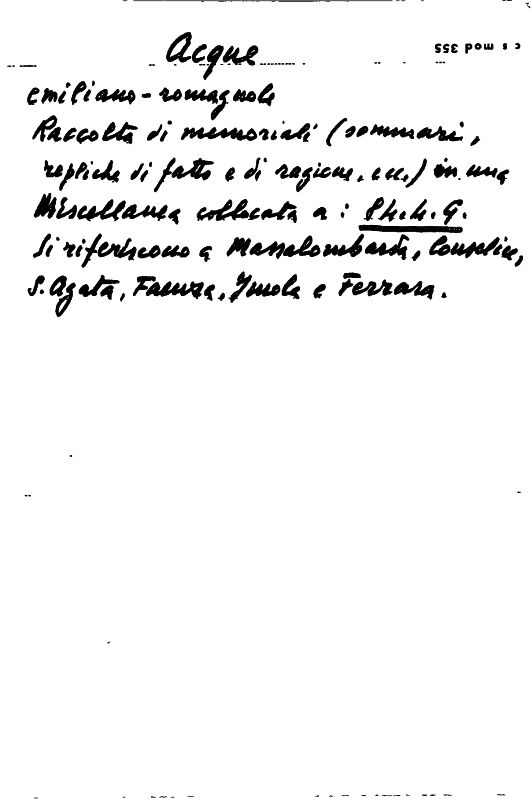 Acque
c s mod 355
emiliano-romagnole
Raccolta di memoriali (sommari,
repliche di fatto e di ragione, ecc.) in una
Miscellanea collocata a:
Si riferiscono a Massalombarda, Conselice,
S. Agata, Faenza, Imola e Ferrara.